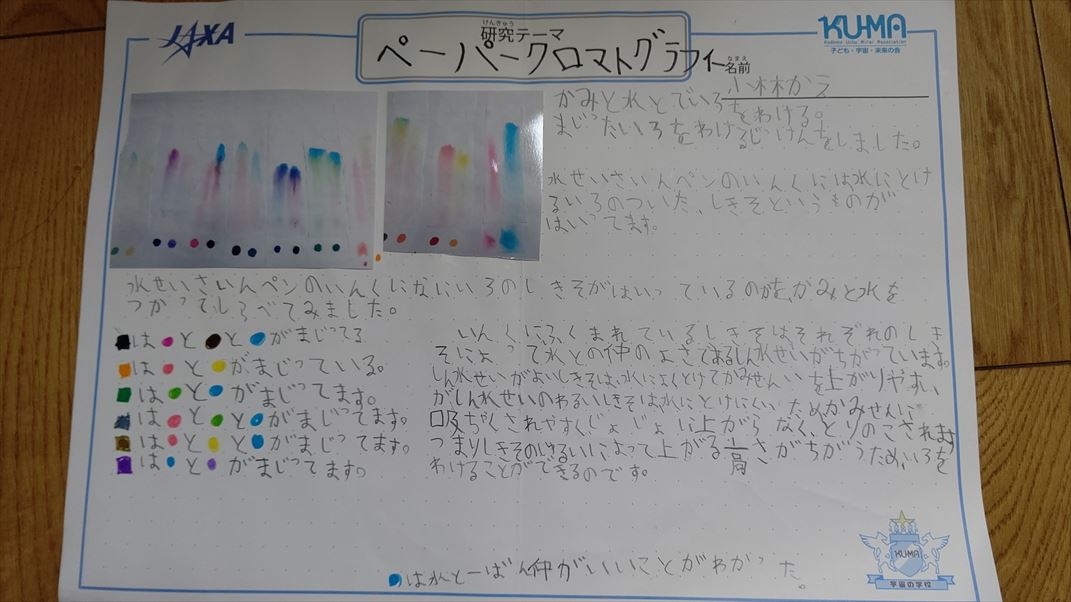 JAXA
けんきゅう
研究テーマ
ペーパークロマトグラフィー
KUMA
Kodomo Uchu Mirai Association
子ども・宇宙・未来の会
なまえ
名前
小林かえ
かみと水とでいろをわける。
まじったいろをわけるじっけんをしました。
水せいさいんペンのいんくには水にとけ
るいろのついた、しきそというものが
はいってます。
水せいさいんペンのいんくになにいろのしきそがはいっているのかを、かみと水を
つかってしらべてみました。
は と と がまじってる
は と がまじっている。
は と がまじってます。
は と と がまじってます。
は と と がまじってます。
は と がまじってます。
いんくにふくまれているしきそはそれぞれのしき
そによって水との仲のよさであるしん水せいがちがっています。
しん水せいがよいしきそは、水によくとけてかみせんいを上がりやすい
がしん水せいのわるいしきそは水にとけにくいためかみせんいに
吸ちゃくされやすくじょじょに上がらなく、とりのこされます
つまりしきそのしるいによって上がる高さがちがうため、いろを
わけることができるのです。
は水と一ばん仲がいいことがわかった。
KUMA
宇宙の学校